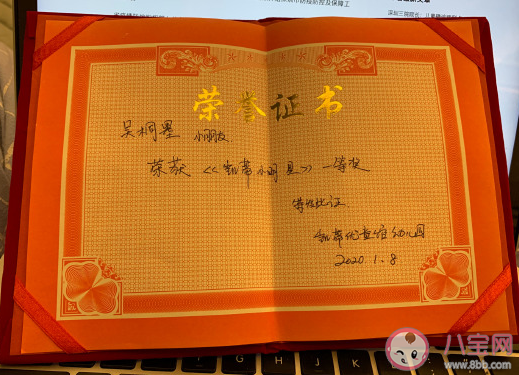 荣誉证书
吴桐墨 小朋友
荣获《凯蒂小明星》一等奖
特发此证
2020.1.8
八宝网
www.8bb.com